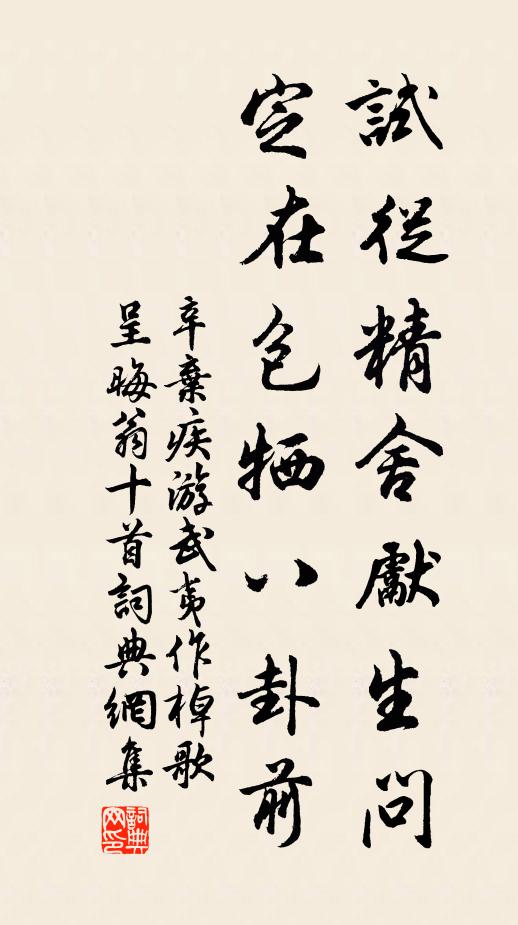 試從精舍獻生問
定在包牺八卦前
辛棄疾游武夷作棹歌
呈晦翁十首詞典網集
詞典网印